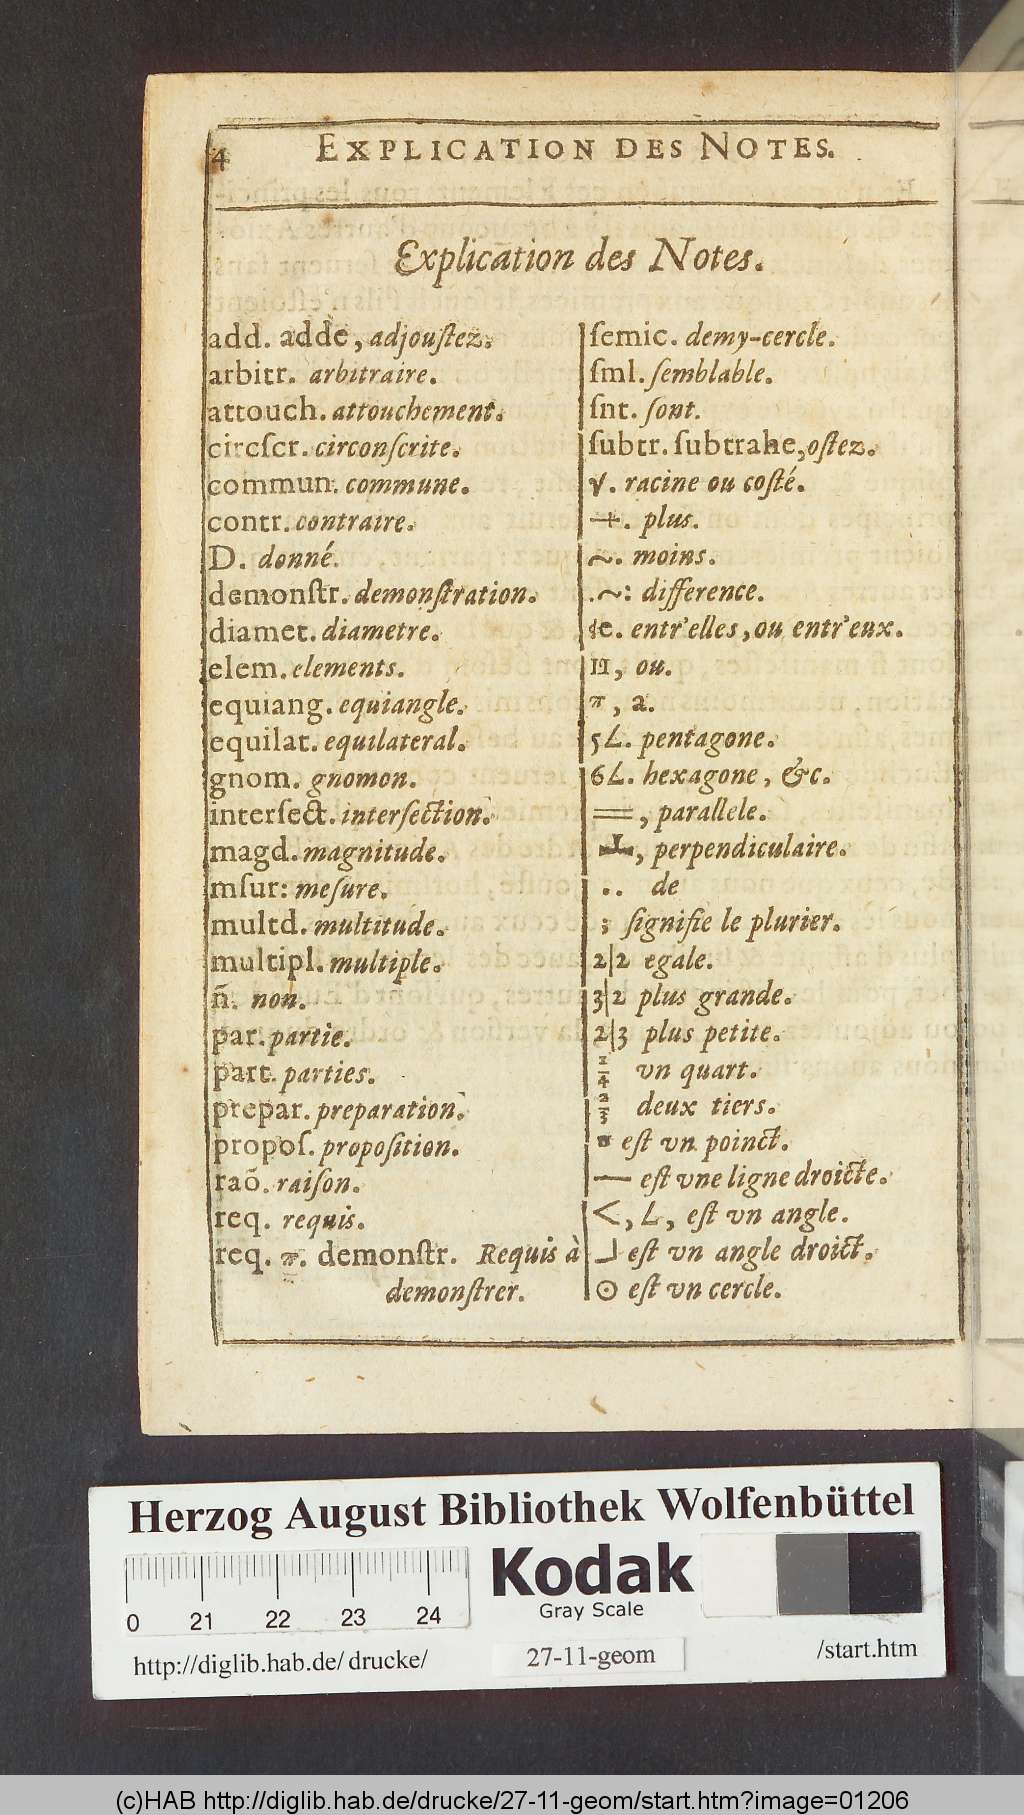 4 EXPLICATION DES NOTES.
Explication des Notes.
add. adde, adjouſtez.
arbitr. arbitraire.
attouch. attouchement.
circſcr. circonſcrite.
commun. commune.
contr. contraire.
D. donné.
demonſtr. demonſtration.
diamet. diametre.
elem. elements.
equiang. equiangle.
equilat. equilateral.
gnom. gnomon.
interſect. interſection.
magd. magnitude.
mſur: meſure.
multd. multitude.
multipl. multiple.
ñ. non.
par. partie.
part. parties.
prepar. preparation.
propoſ. propoſition.
raõ. raiſon.
req. requis.
req. π. demonſtr. Requis à
demonſtrer.
ſemic. demy-cercle.
ſml. ſemblable.
ſnt. ſont.
ſubtr. ſubtrahe, oſtez.
√. racine ou coſté.
+. plus.
~. moins.
.~: difference.
entr'elles, ou entr'eux.
ou.
π, a.
5∠. pentagone.
6∠. hexagone, &c.
=, parallele.
⊥, perpendiculaire.
.. de
; ſignifie le plurier.
2|2 egale.
3|2 plus grande.
2|3 plus petite.
1/4 vn quart.
2/3 deux tiers.
eſt vn poinct.
— eſt vne ligne droicte.
<, ∠, eſt vn angle.
⅃ eſt vn angle droict.
⊙ eſt vn cercle.
Herzog August Bibliothek Wolfenbüttel
0 21 22 23 24
Kodak
Gray Scale
http://diglib.hab.de/drucke/ 27-11-geom /start.htm
(c)HAB http://diglib.hab.de/drucke/27-11-geom/start.htm?image=01206